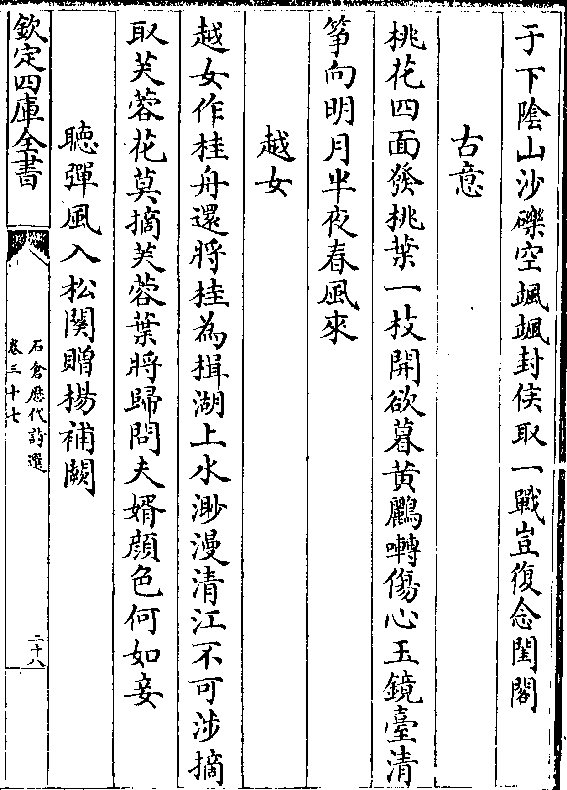 于下陰山沙礫空颯颯封侯取一戰豈復念閨閣
古意
桃花四面發桃葉一枝開欲暮黃鸝囀傷心玉鏡臺清
筝向明月半夜春風來
越女
越女作桂舟還將桂為揖湖上水渺漫清江不可涉摘
取芙蓉花莫摘芙蓉葉將歸問夫婿顔色何如妾
聽彈風入松闋贈揚補闕
欽定四庫全書
石倉歴代詩選
卷三十七
二十八